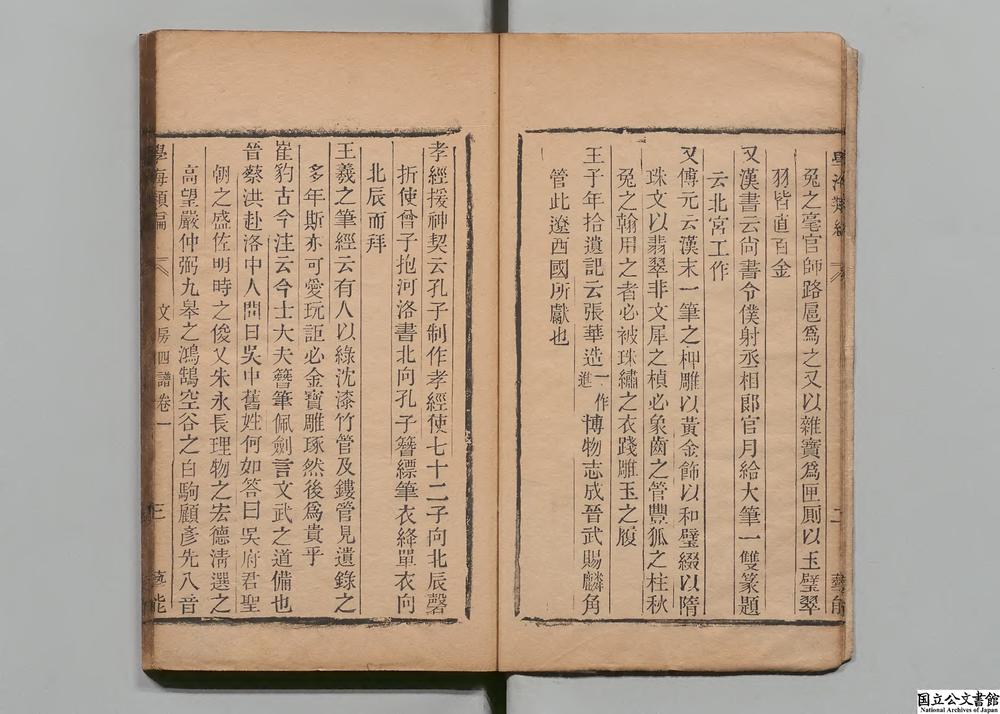 學海類編
二
藝能
兔之毫官師路扈爲之又以雜寶爲匣厠以玉璧翠
羽皆直百金
又漢書云尙書令僕射丞相郎官月給大筆一雙篆題
云北宮工作
又傅元云漢末一筆之柙雕以黃金飾以和璧綴以隋
珠文以翡翠非文犀之楨必象齒之管豐狐之柱秋
兔之翰用之者必被珠繡之衣踐雕玉之履
王子年拾遺記云張華造一作進博物志成晉武賜麟角
管此遼西國所獻也
孝經援神契云孔子制作孝經使七十二子向北辰磬
折使曾子抱河洛書北向孔子簪縹筆衣絳單衣向
北辰而拜
王羲之筆經云有人以綠沈漆竹管及鏤管見遺錄之
多年斯亦可愛玩詎必金寶雕琢然後爲貴乎
崔豹古今注云今士大夫簪筆佩劍言文武之道備也
晉蔡洪赴洛中人問曰吳中舊姓何如答曰吳府君聖
朝之盛佐明時之俊乂朱永長理物之宏德淸選之
高望嚴仲弼九皋之鴻鵠空谷之白駒顧彥先八音
學海類編
文房四譜卷一
三
藝能
国立公文書館
National Archives of Japan